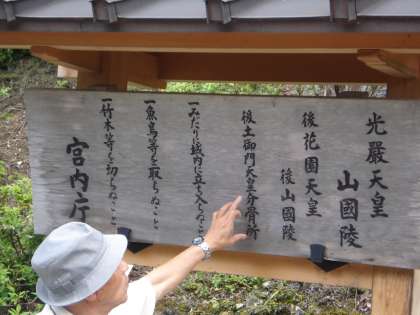 光嚴天皇
山國陵
後花園天皇
後山國陵
後土御門天皇分骨所
一みだりに域内に立ち入らぬこと
一魚鳥等を取らぬこと
一竹木等を切らぬこと
宮内庁